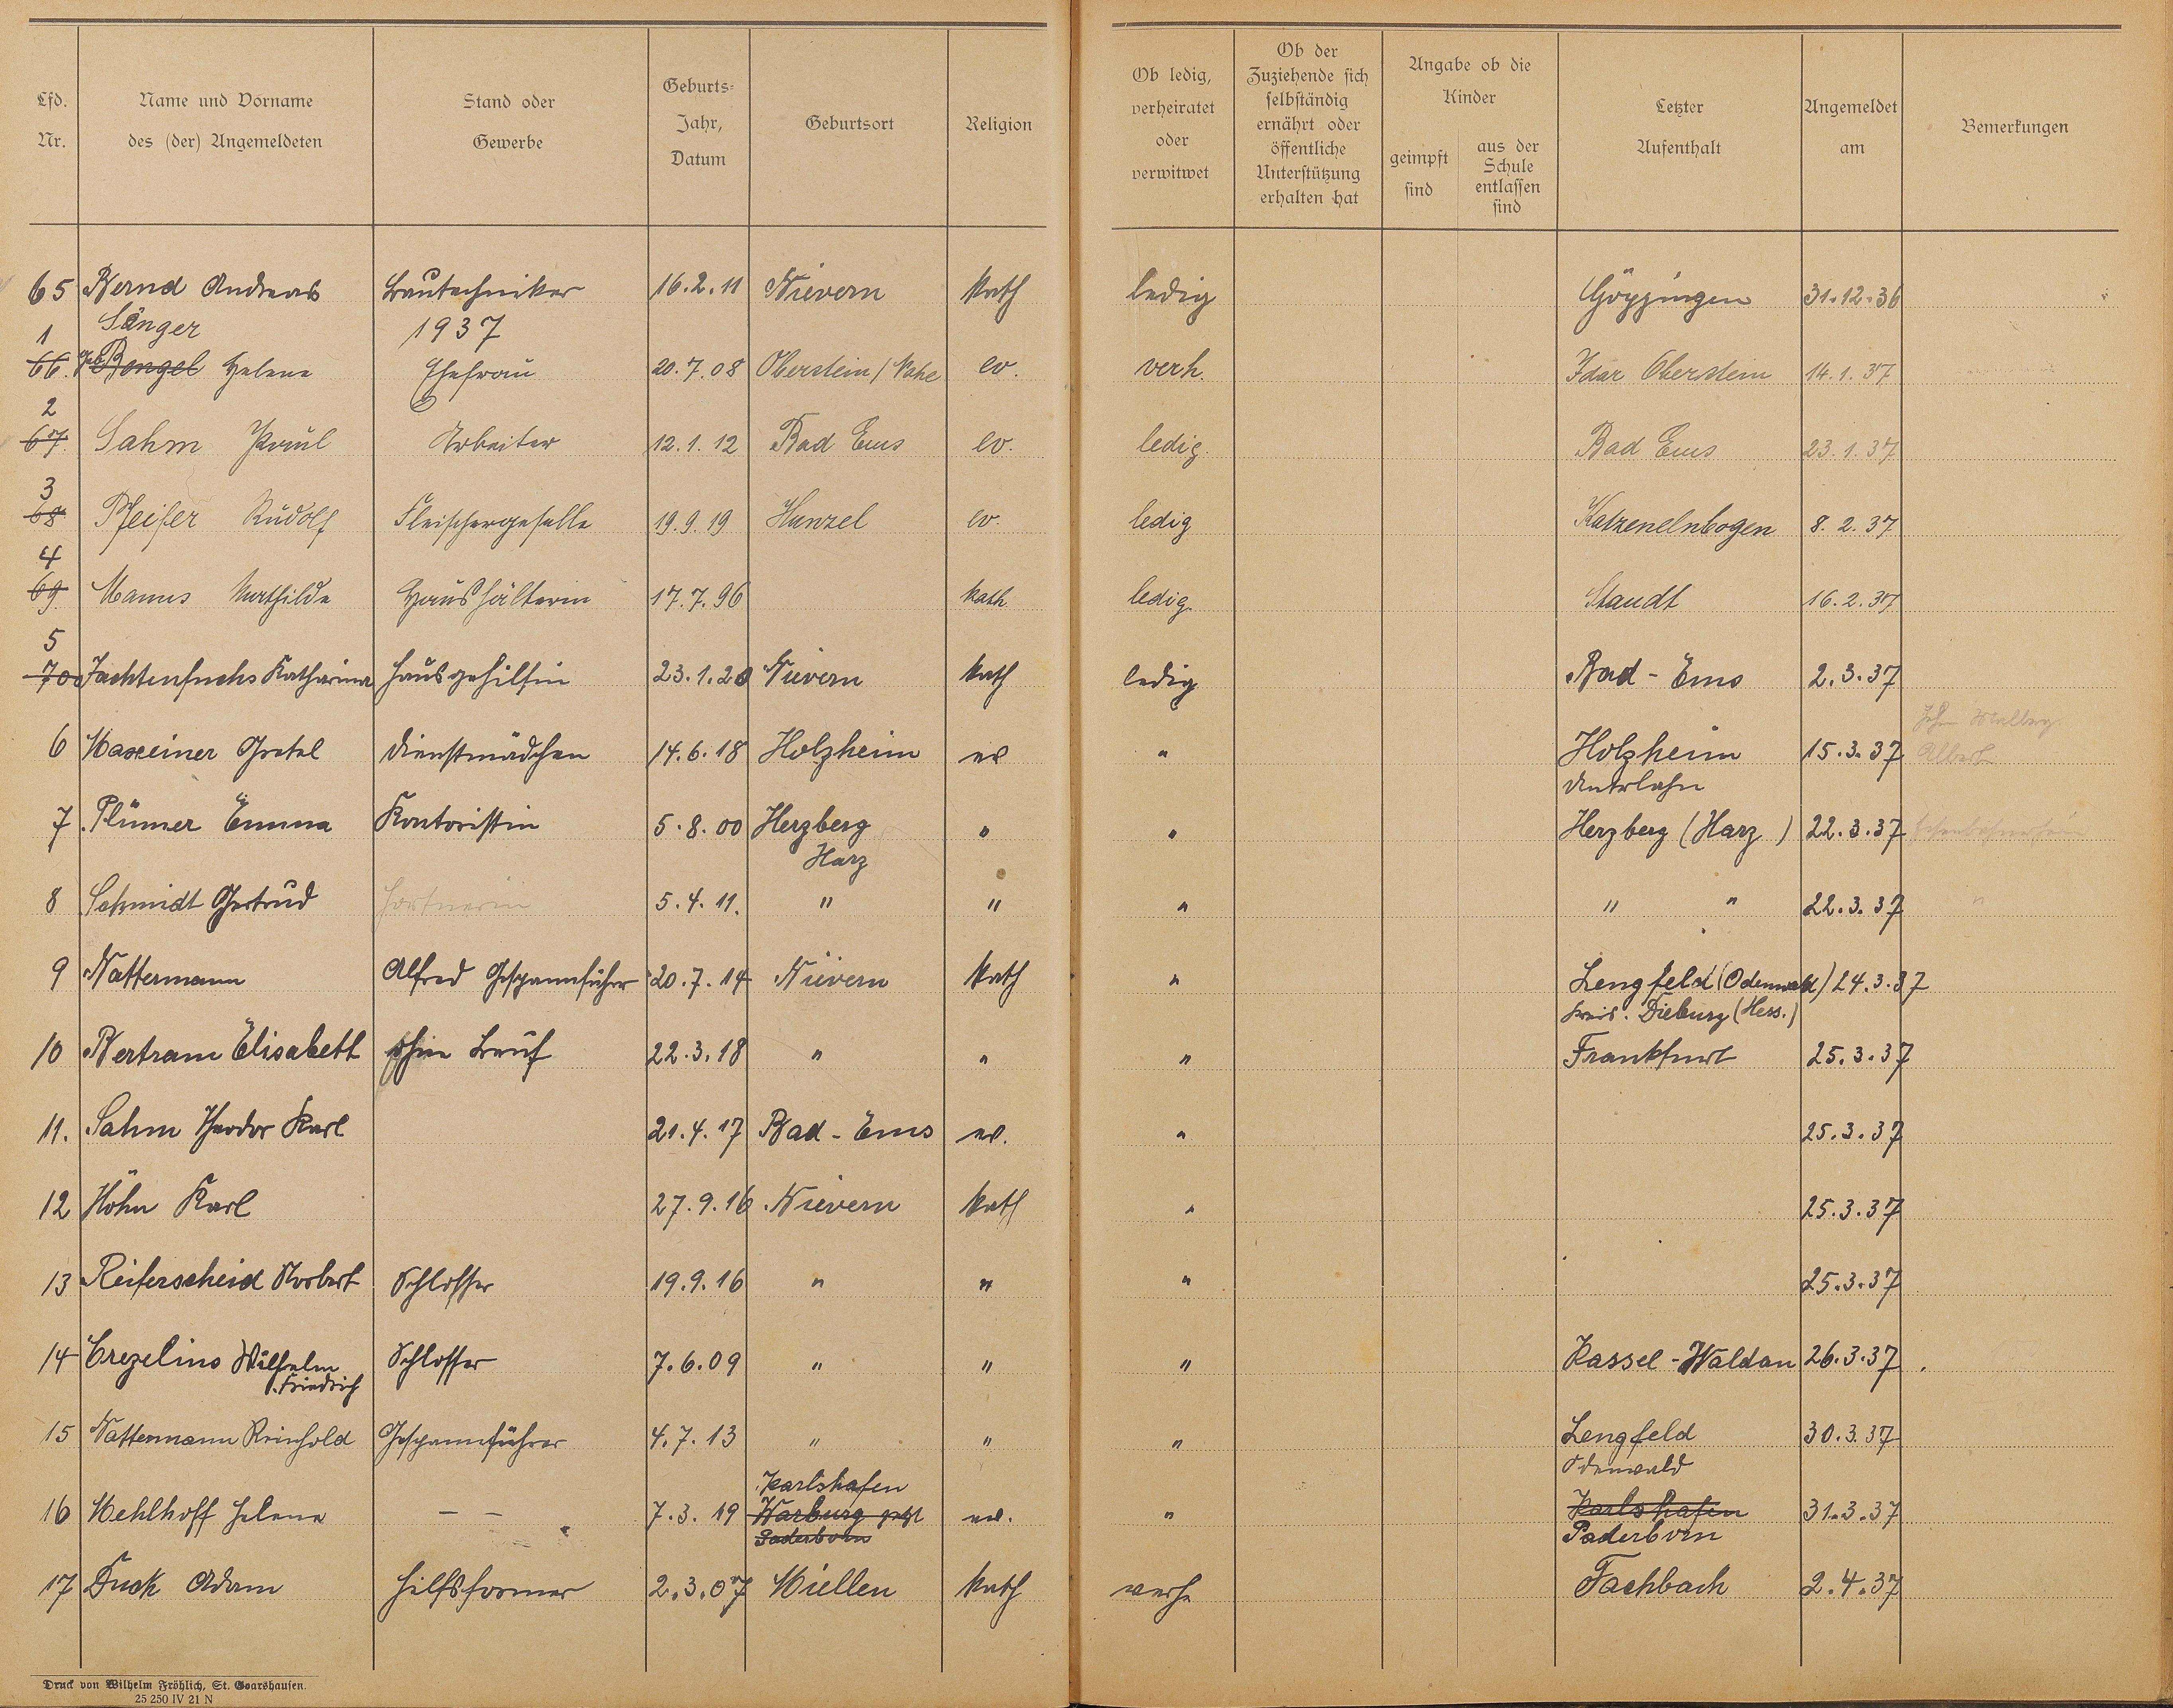 Lfd. Nr.
Name und Vorname des (der) Angemeldeten
Stand oder Gewerbe
Geburts- Jahr, Datum
Geburtsort
Religion
Ob ledig, verheiratet oder verwitwet
Ob der Zuziehende sich selbständig ernährt oder öffentliche Unterstützung erhalten hat
Angabe ob die Kinder
geimpft sind
aus der Schule entlassen sind
Letzter Aufenthalt
Angemeldet am
Bemerkungen
65 Bernd Andreas Bautechniker 16.2.11 Nievern kath ledig Göppingen 31.12.36
1937
Sänger
1 66. geb Bengel Helene Ehefrau 20.7.08 Oberstein / Nahe ev. verh. Idar Oberstein 14.1.37
2 67. Sahm Paul Arbeiter 12.1.12 Bad Ems ev. ledig. Bad Ems 23.1.37
3 68 Pfeifer Rudolf Fleischergeselle 19.9.19 Hunzel ev. ledig Katzenelnbogen 8.2.37
4 69. Manns Mathilde Haushälterin 17.7.96 kath. ledig. Staudt 16.2.37
5 70 Jachtenfuchs Katharina Hausgehilfin 23.1.20 Nievern kath ledig Bad-Ems 2.3.37
6 Maxeiner Gretel Dienstmädchen 14.6.18 Holzheim ev " Holzheim 15.3.37 Albert
Unterlahn
7. Plümer Emma Kontoristin 5.8.00 Herzberg " " Herzberg (Harz) 22.3.37
Harz
8 Schmidt Gertrud 5.4.11. " " " " " 22.3.37 "
9 Nattermann Alfred Gespannführer 20.7.14 Nievern kath " Lengfeld (Odenwald) 24.3.37
Kreis. Dieburg (Hess.)
10 Bertram Elisabeth ohne Beruf 22.3.18 " " " Frankfurt 25.3.37
11. Sahm Theodor Karl 21.4.17 Bad-Ems ev. " 25.3.37
12 Höhn Karl 27.9.16 Nievern kath " 25.3.37
13 Reiferscheid Norbert Schlosser 19.9.16 " " " 25.3.37
14 Crezelius Wilhelm Schlosser 7.6.09 " " " Kassel-Waldau 26.3.37
Friedrich
15 Nattermann Reinhold Gespannführer 4.7.13 " " " Lengfeld 30.3.37
Odenwald
Karlshafen
16 Mehlhoff Helene — — 7.3.19 Warburg ev. " Karlshafen 31.3.37
Paderborn Paderborn
17 Duck Adam Hilfsformer 2.3.07 Miellen kath verh Fachbach 2.4.37
Druck von Wilhelm Fröhlich, St. Goarshausen.
25 250 IV 21 N